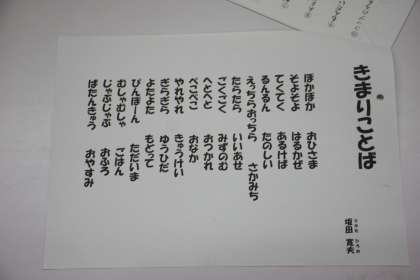 きまりことば
さかた ひろお
坂田 寛夫
ぽかぽか おひさま
そよそよ はるかぜ
てくてく あるけば
るんるん たのしい
えっちらおっちら さかみち
たらたら いいあせ
ごくごく みずのむ
へとへと おつかれ
ぺこぺこ おなか
やれやれ きゅうけい
ぎらぎら ゆうひだ
よたよた もどって
ぴんぽーん ただいま
むしゃむしゃ ごはん
じゃぶじゃぶ おふろ
ばたんきゅう おやすみ